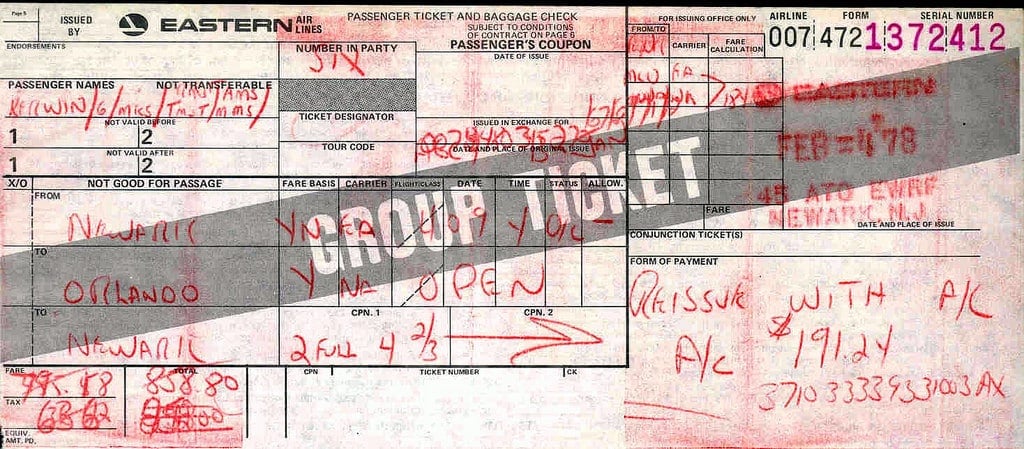 Page 5
ISSUED BY
EASTERN AIR LINES
PASSENGER TICKET AND BAGGAGE CHECK
SUBJECT TO CONDITIONS
OF CONTRACT ON PAGE 6
PASSENGER'S COUPON
FOR ISSUING OFFICE ONLY
AIRLINE FORM SERIAL NUMBER
007 472 1372412
ENDORSEMENTS
NUMBER IN PARTY
SIX
DATE OF ISSUE
FROM/TO CARRIER FARE CALCULATION
EA
PASSENGER NAMES NOT TRANSFERABLE
NOT VALID BEFORE
1 2
NOT VALID AFTER
1 2
TICKET DESIGNATOR
TOUR CODE
ISSUED IN EXCHANGE FOR
DATE AND PLACE OF ORIGINAL ISSUE
EASTERN
FEB -4 '78
45 ATO EWRF
NEWARK, N.J.
DATE AND PLACE OF ISSUE
GROUP TICKET
X/O NOT GOOD FOR PASSAGE FARE BASIS CARRIER FLIGHT/CLASS DATE TIME STATUS ALLOW.
FROM
NEWARK YN EA 409 Y OK -
TO
ORLANDO Y NA OPEN
TO
NEWARK
CPN. 1 CPN. 2
2 FULL 4 2/3
FARE
CONJUNCTION TICKET(S)
FORM OF PAYMENT
REISSUE WITH A/C
A/C $191.24
371033339531003 AX
FARE TOTAL
795.18 858.80
TAX
63.62
EQUIV. AMT. PD.
CPN TICKET NUMBER CK